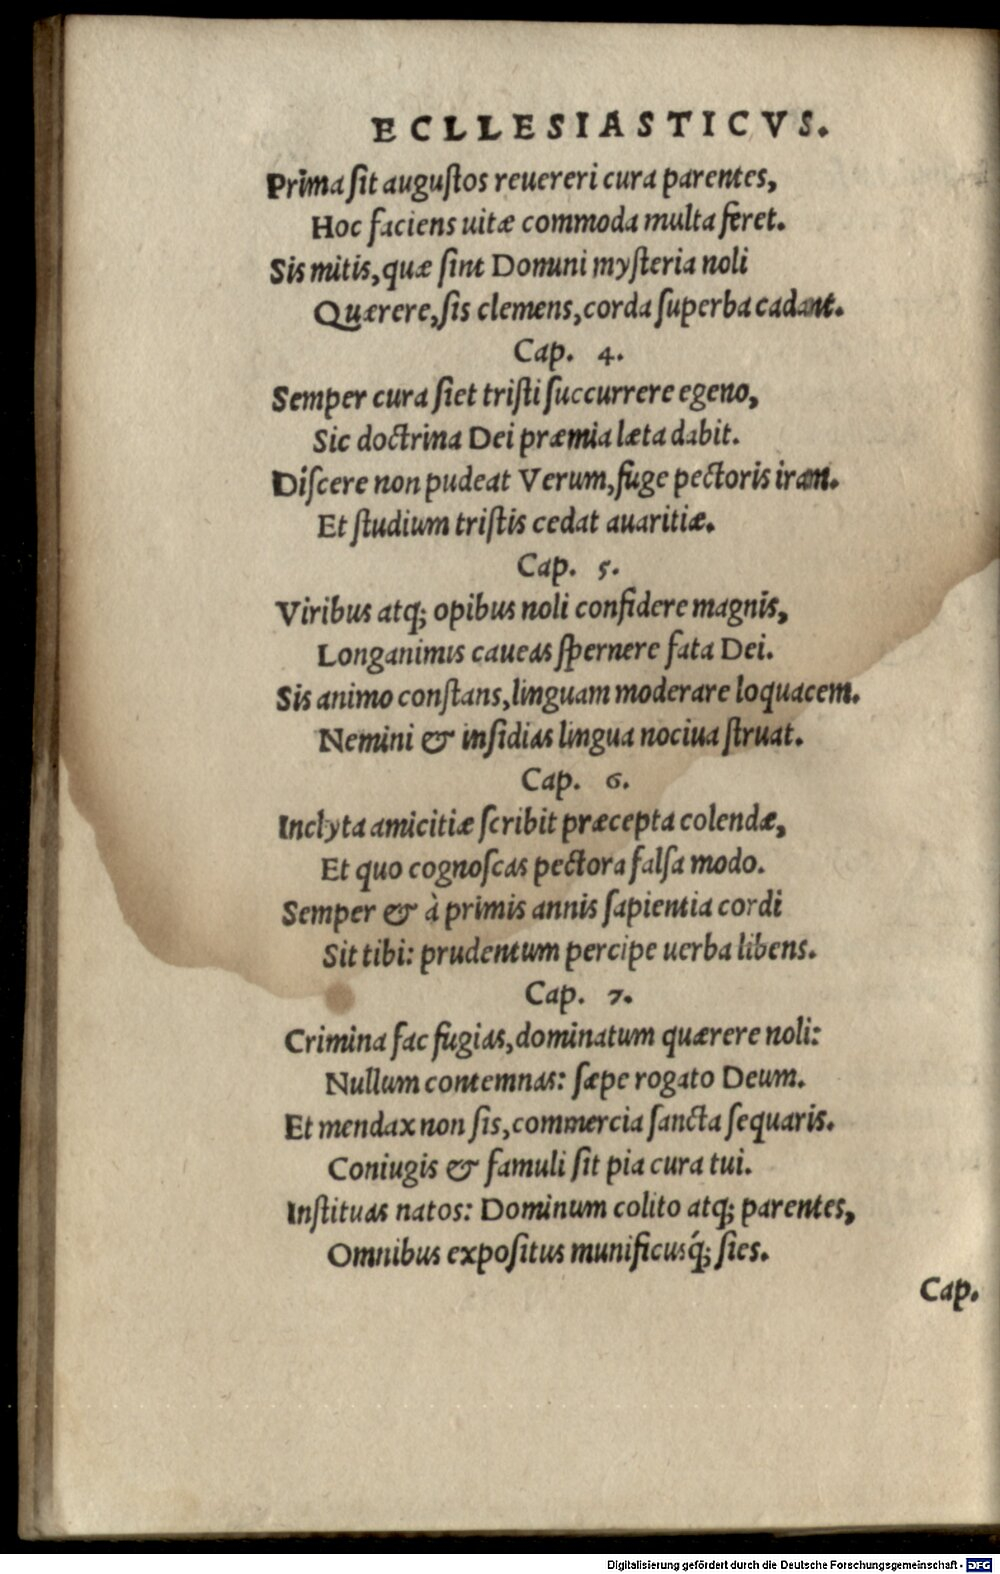 ECLLESIASTICVS.
Prima ſit auguſtos reuereri cura parentes,
Hoc faciens uitæ commoda multa feret.
Sis mitis, quæ ſint Domini myſteria noli
Quærere, ſis clemens, corda ſuperba cadant.
Cap. 4.
Semper cura ſiet triſti ſuccurrere egeno,
Sic doctrina Dei præmia læta dabit.
Diſcere non pudeat Verum, fuge pectoris iram.
Et ſtudium triſtis cedat auaritiæ.
Cap. 5.
Viribus atq; opibus noli confidere magnis,
Longanimis caueas ſpernere fata Dei.
Sis animo conſtans, linguam moderare loquacem.
Nemini & inſidias lingua nociua ſtruat.
Cap. 6.
Inclyta amicitiæ ſcribit præcepta colendæ,
Et quo cognoſcas pectora falſa modo.
Semper & à primis annis ſapientia cordi
Sit tibi: prudentum percipe uerba libens.
Cap. 7.
Crimina fac fugias, dominatum quærere noli:
Nullum contemnas: ſæpe rogato Deum.
Et mendax non ſis, commercia ſancta ſequaris.
Coniugis & famuli ſit pia cura tui.
Inſtituas natos: Dominum colito atq; parentes,
Omnibus expoſitus munificusq́; ſies.
Cap.
Digitalisierung gefördert durch die Deutsche Forschungsgemeinschaft - DFG